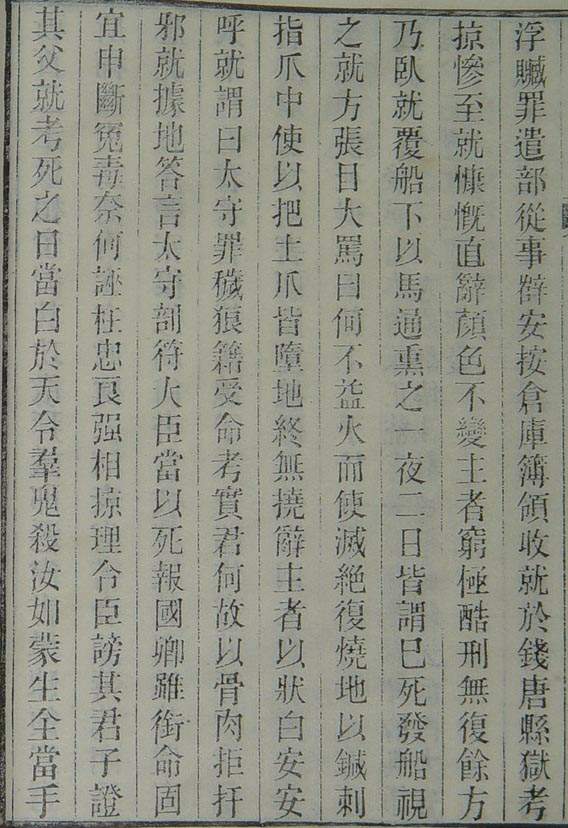 浮贓罪遣部從事薛安按倉庫簿領收就於錢唐縣獄考
掠慘至就慷慨直辭顏色不變主者窮極酷刑無復餘方
乃臥就覆船下以馬通熏之一夜二日皆謂巳死發船視
之就方張目大罵曰何不益火而使滅絕復燒地以鍼刺
指爪中使以把土爪皆墮地終無撓辭主者以狀白安安
呼就謂曰太守罪穢狼籍受命考實君何故以骨肉拒扞
邪就據地答言太守剖符大臣當以死報國卿雖銜命固
宜申斷冤毒柰何誣枉忠良强相掠理令臣謗其君子證
其父就考死之日當白於天令羣鬼殺汝如蒙生全當手